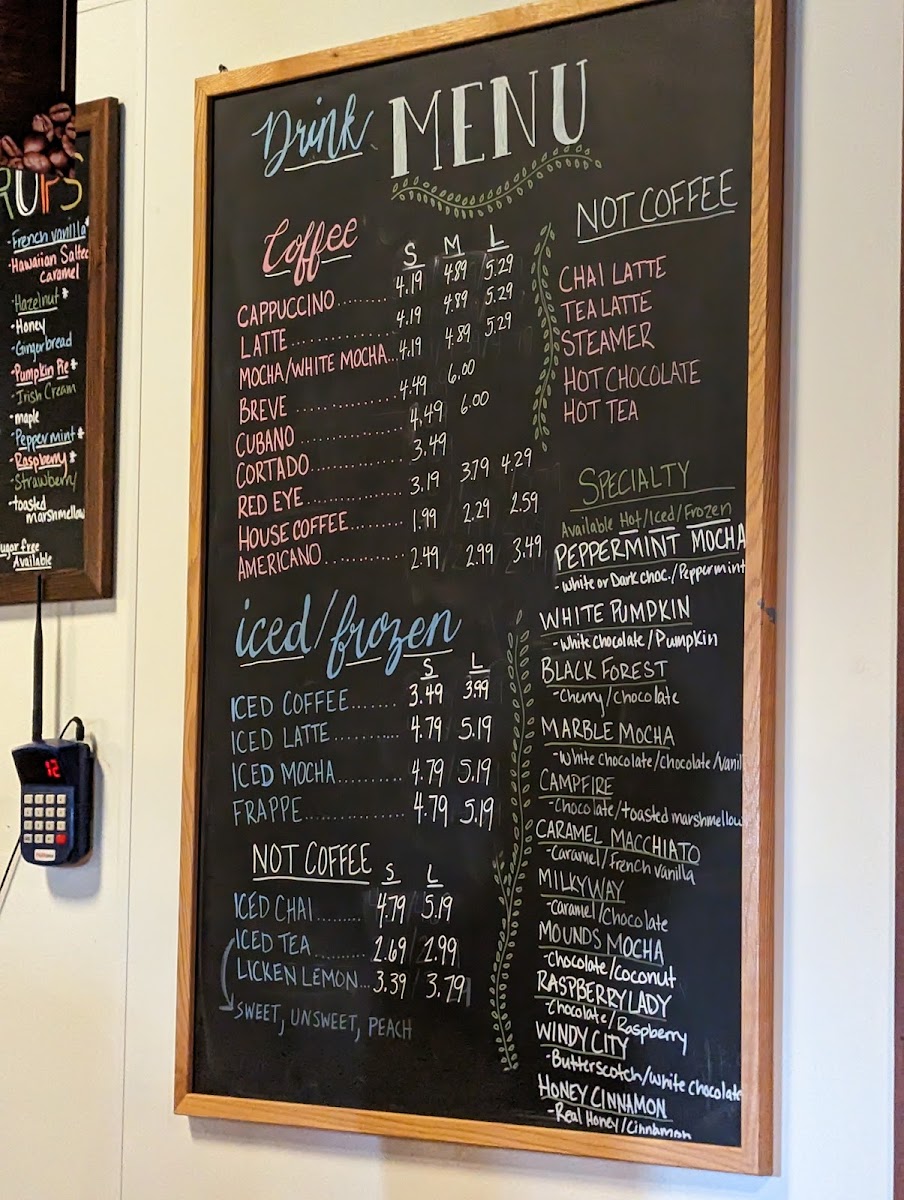 RUPS
-French vanilla*
-Hawaiian Salted
caramel
-Hazelnut*
-Honey
-Gingerbread
-Pumpkin Pie*
-Irish Cream
-maple
-Peppermint*
-Raspberry*
-Strawberry
-toasted
marshmellow
ugar free
Available
12
Drink MENU
Coffee
S M L
CAPPUCCINO........ 4.19 4.89 5.29
LATTE.................. 4.19 4.89 5.29
MOCHA/WHITE MOCHA...4.19 4.89 5.29
BREVE ................. 4.49 6.00
CUBANO ................. 4.49 6.00
CORTADO.............. 3.49
RED EYE............... 3.19 3.79 4.29
HOUSE COFFEE......... 1.99 2.29 2.59
AMERICANO............. 2.49 2.99 3.49
iced/frozen
S L
ICED COFFEE....... 3.49 3.99
ICED LATTE.......... 4.79 5.19
ICED MOCHA.......... 4.79 5.19
FRAPPE................ 4.79 5.19
NOT COFFEE S L
ICED CHAI......... 4.79 5.19
ICED TEA .......... 2.69 2.99
LICKEN LEMON... 3.39 3.79
SWEET, UNSWEET, PEACH
NOT COFFEE
CHAI LATTE
TEA LATTE
STEAMER
HOT CHOCOLATE
HOT TEA
SPECIALTY
Available Hot/Iced/Frozen
PEPPERMINT MOCHA
-White or Dark choc./Peppermint
WHITE PUMPKIN
-White chocolate/Pumpkin
BLACK FOREST
-Cherry/Chocolate
MARBLE MOCHA
-White chocolate/chocolate/Vanil
CAMPFIRE
-Chocolate/toasted marshmellow
CARAMEL MACCHIATO
-Caramel/french vanilla
MILKYWAY
-Caramel/Chocolate
MOUNDS MOCHA
-Chocolate/Coconut
RASPBERRY LADY
-Chocolate/Raspberry
WINDY CITY
-Butterscotch/White Chocolate
HONEY CINNAMON
-Real Honey/Cinnamon